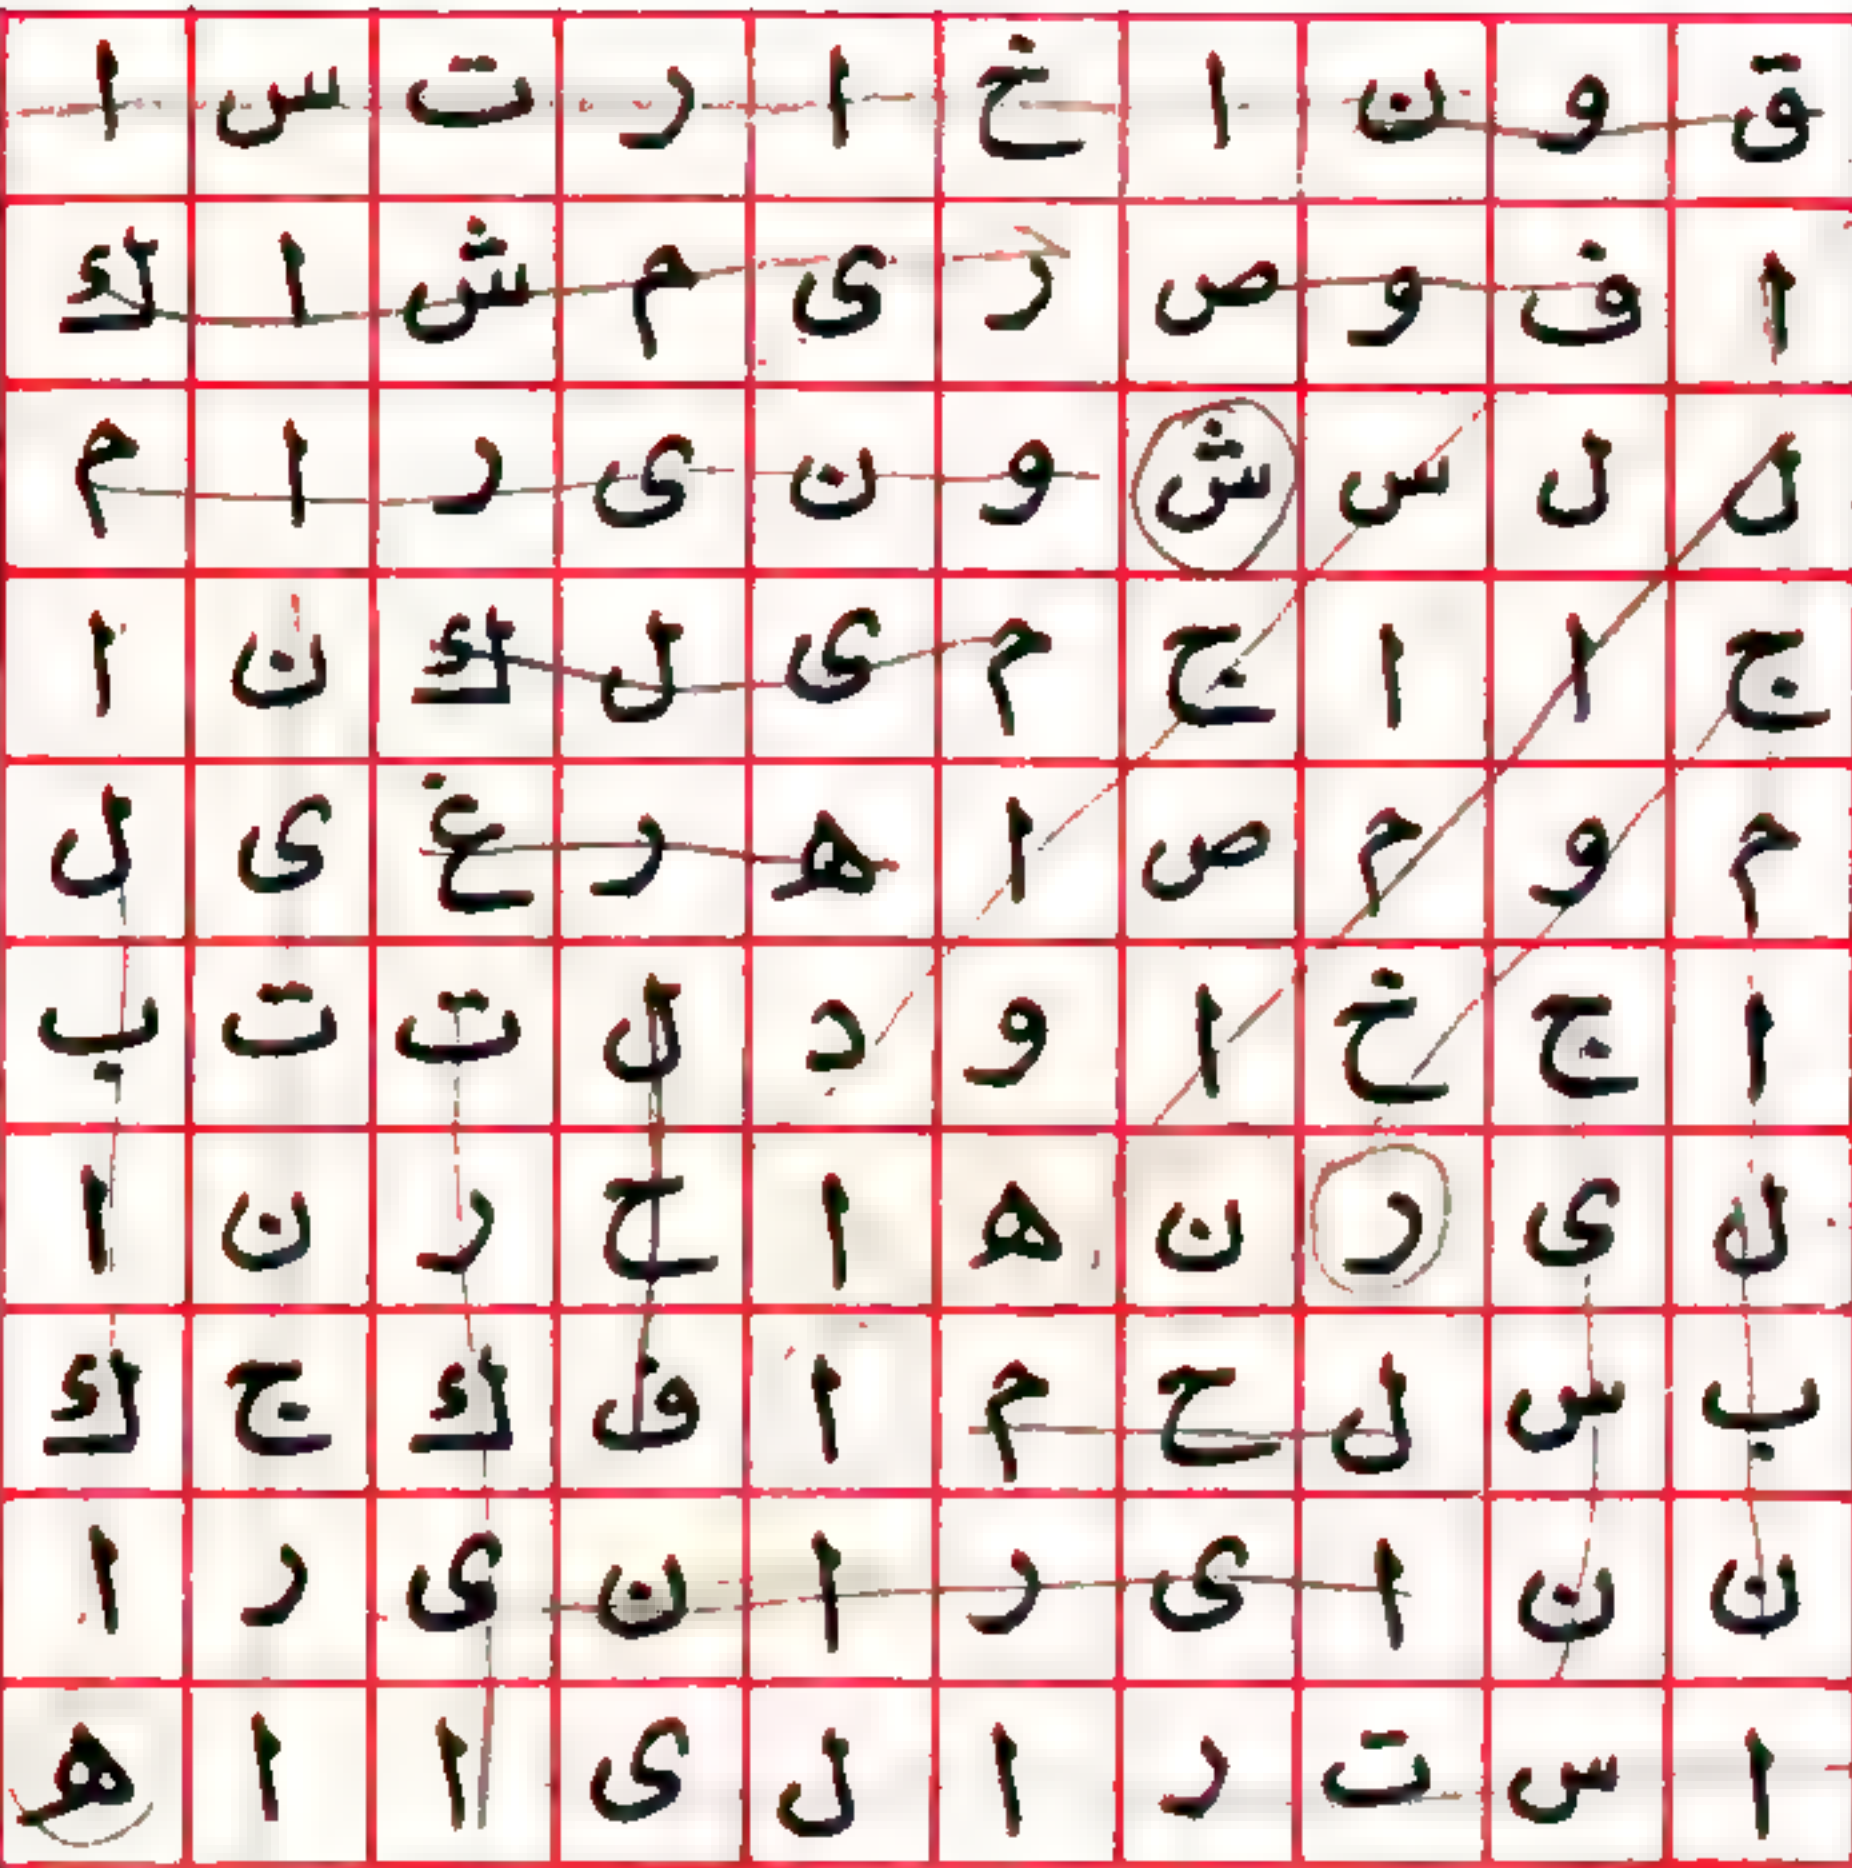 ق و ن ا خ ا ر ت س ا
ا ف و ص ر ى م ش ا ك
ل ل س ش و ن ى ر ا م
ج ا ا ج م ى ل ك ن ا
م و م ص ا ه ر غ ى ل
ا ج خ ا و د ل ت ت ب
ل ى ر ن ه ا ح ر ن ا
ب س ل ح م ا ف ك ج ك
ن ن ا ى ر ا ن ى ر ا
ا س ت ر ا ل ى ا ا ه